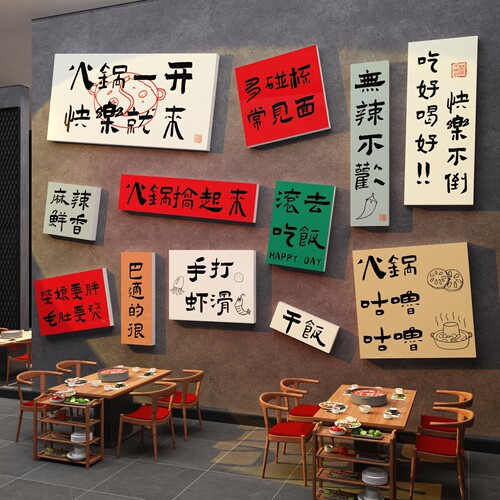 火鍋一开
快樂就来
多碰杯
常見面
無辣不歡
吃好喝好!!
快樂不倒
麻辣
鮮香
火鍋搞起来
滾去
吃飯
HAPPY DAY
火鍋
咕嚕
咕嚕
婆娘要胖
毛肚要燙
巴適的很
手打
虾滑
干飯